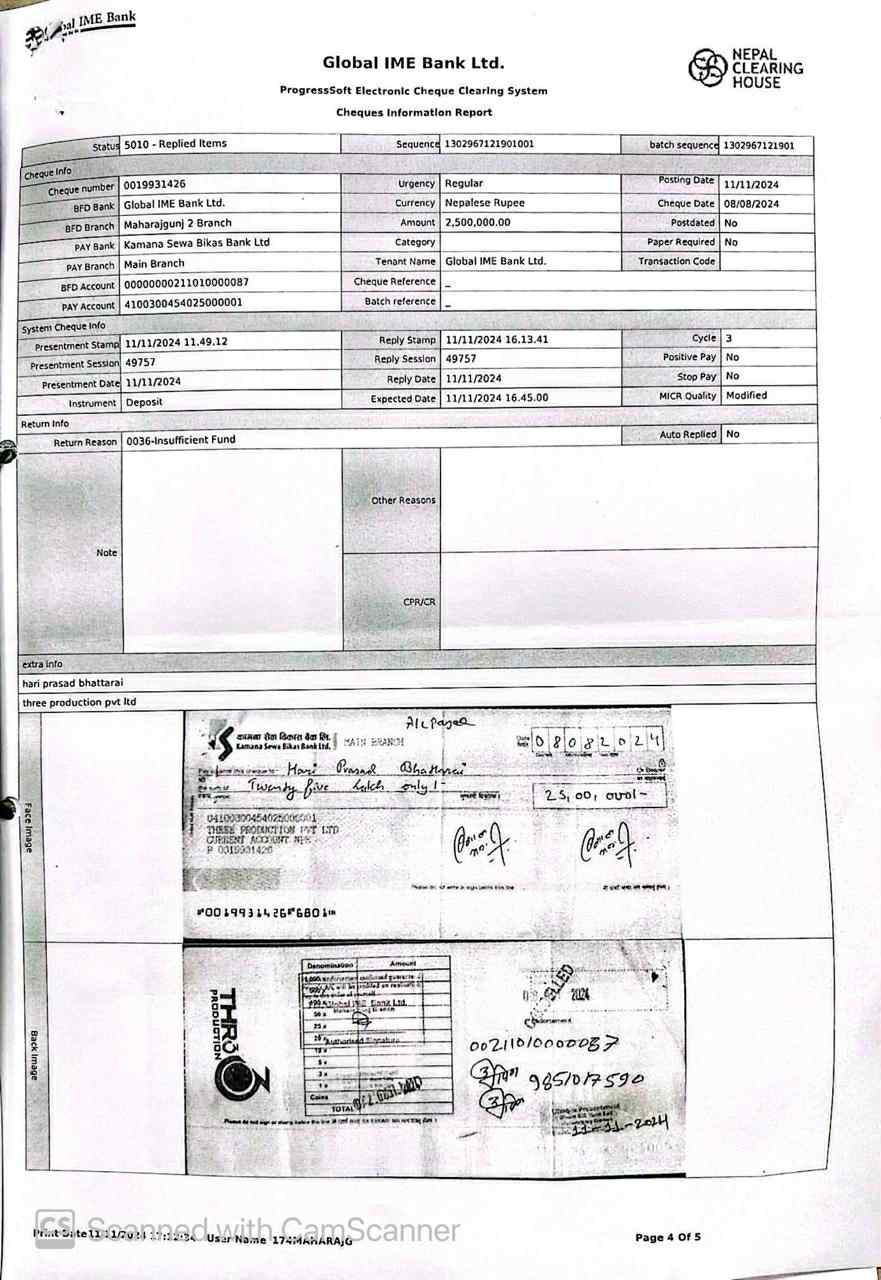 Global IME Bank
Global IME Bank Ltd.
NEPAL
CLEARING
HOUSE
ProgressSoft Electronic Cheque Clearing System
Cheques Information Report
Status 5010 - Replied Items Sequence 1302967121901001 batch sequence 1302967121901
Cheque Info
Cheque number 0019931426 Urgency Regular Posting Date 11/11/2024
BFD Bank Global IME Bank Ltd. Currency Nepalese Rupee Cheque Date 08/08/2024
BFD Branch Maharajgunj 2 Branch Amount 2,500,000.00 Postdated No
PAY Bank Kamana Sewa Bikas Bank Ltd Category Paper Required No
PAY Branch Main Branch Tenant Name Global IME Bank Ltd. Transaction Code
BFD Account 00000000211010000087 Cheque Reference _
PAY Account 4100300454025000001 Batch reference _
System Cheque Info
Presentment Stamp 11/11/2024 11.49.12 Reply Stamp 11/11/2024 16.13.41 Cycle 3
Presentment Session 49757 Reply Session 49757 Positive Pay No
Presentment Date 11/11/2024 Reply Date 11/11/2024 Stop Pay No
Instrument Deposit Expected Date 11/11/2024 16.45.00 MICR Quality Modified
Return Info
Return Reason 0036-Insufficient Fund Auto Replied No
Note Other Reasons
CPR/CR
extra info
hari prasad bhattarai
three production pvt ltd
Face Image
A/c Payee
कामना सेवा विकास बैंक लि.
Kamana Sewa Bikas Bank Ltd. MAIN BRANCH
Date 08082024
Hari Prasad Bhattarai
Twenty five lakh only/-
25,00,000/-
THREE PRODUCTION PVT LTD
CURRENT ACCOUNT NPR
Back Image
Denomination Amount
Global IME Bank Ltd.
50 x
25 x
Authorised Signature
10 x
5 x
2 x
1 x
Coins
TOTAL
THR33
PRODUCTION
2024
Endorsement
00211010000087
9851017590
11-11-2024
CS Scanned with CamScanner
Print Date 11/11/2024 User Name 174MAHARAJG Page 4 Of 5